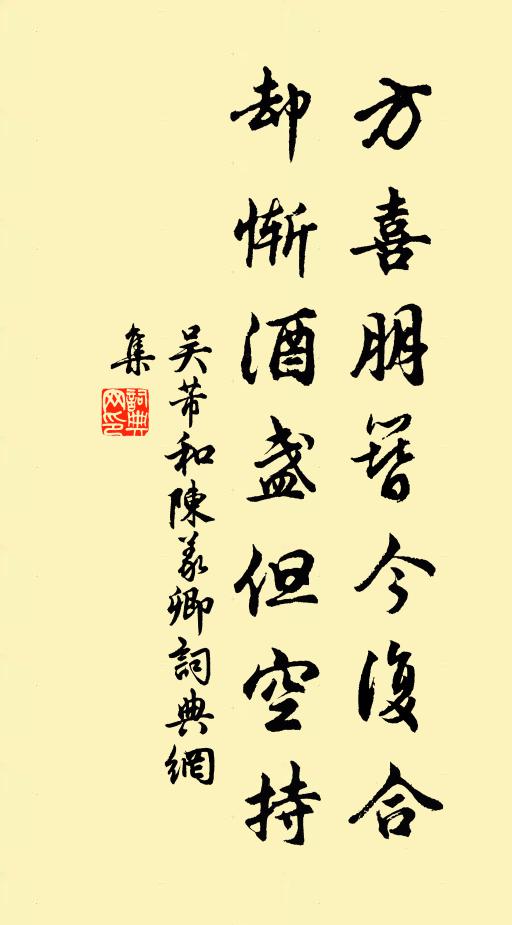 方喜朋簪今復合
却慚酒盞但空持
吴芾和陳義卿詞典網
集
詞典
网印